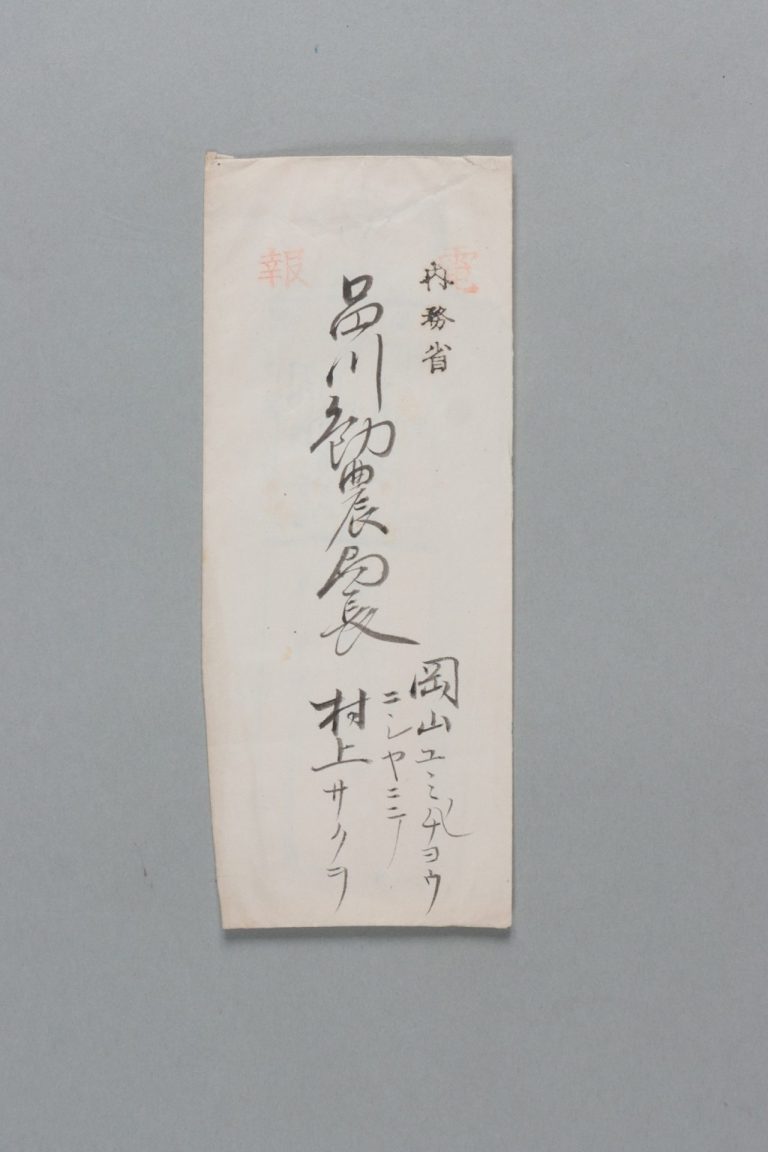 電報
内務省
品川勧農局長
岡山ユミノチヨウ
ニシヤニニノ
村上サクヲ